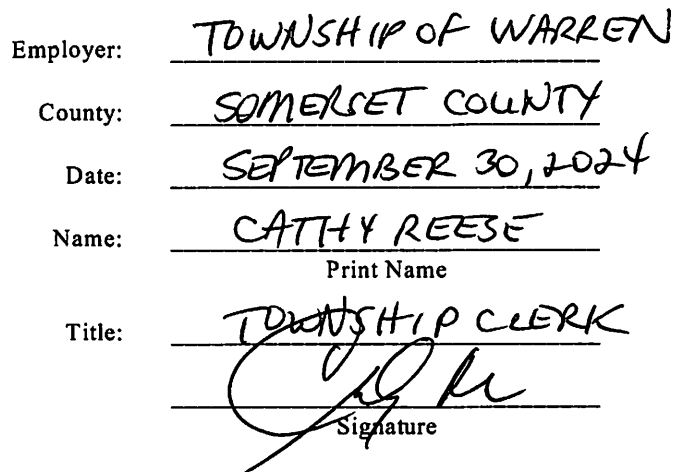 Employer: TOWNSHIP OF WARREN
County: SOMERSET COUNTY
Date: SEPTEMBER 30, 2024
Name: CATHY REESE
Print Name
Title: TOWNSHIP CLERK
Signature